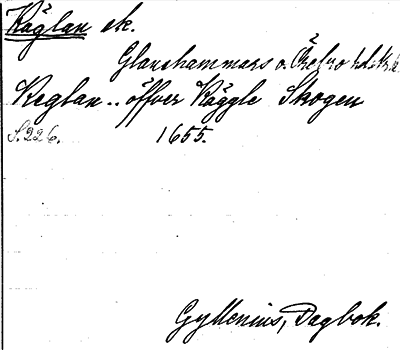 Käglan sk.
Glanshammars o. Örebro hd
Keglan .. öffver Käggle Skogen
S. 226. 1655.
Gyllenius, Dagbok.